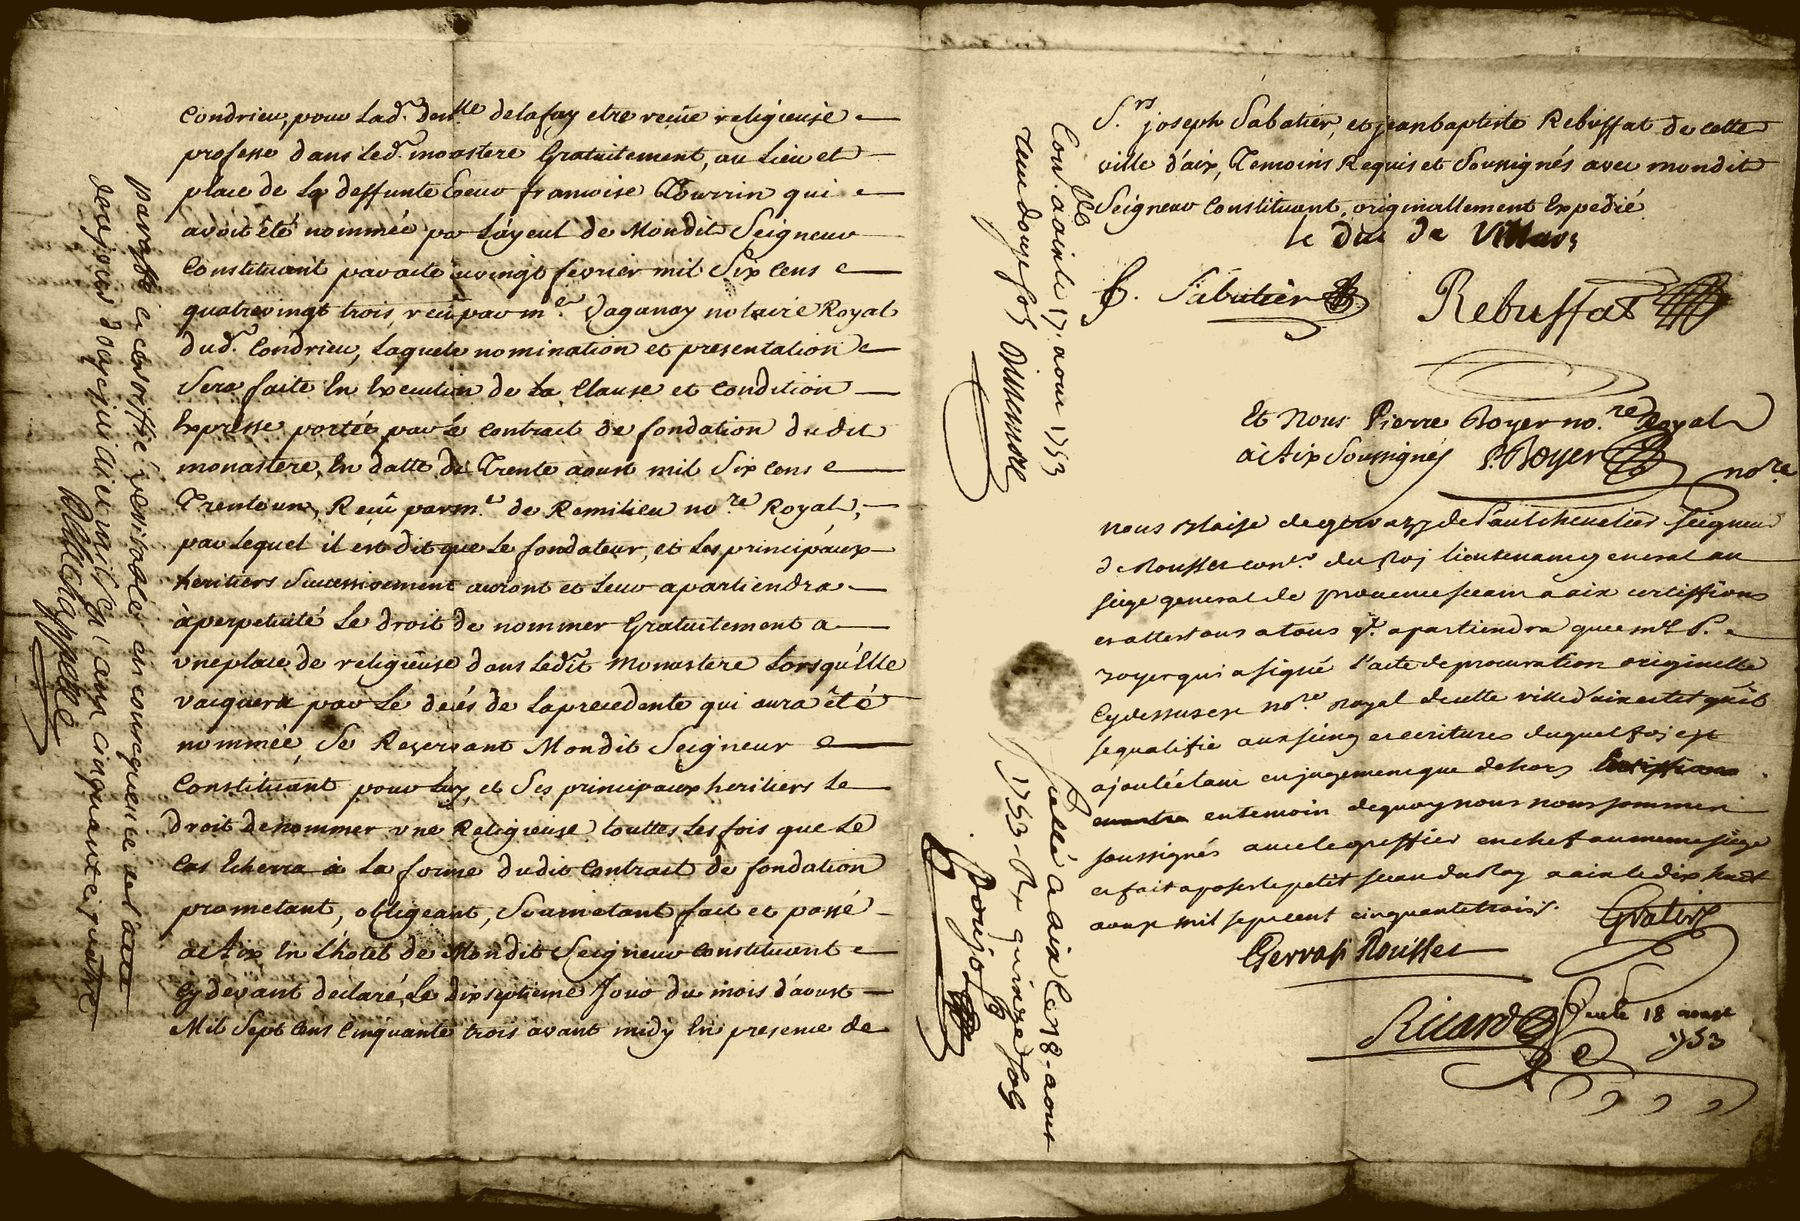 Condrieu, pour lad.e dem.lle delafay etre reçüe religieuse
professe dans led.t monastere Gratuitement, au Lieu et
place de La deffunte Soeur francoise Tourrin qui
avoit été nommée par Layeul de Mondit Seigneur
Constituant par acte du vingt fevrier mil Six Cens
quatrevingt trois, reçu par m.e Vaganay notaire Royal
dud.t Condrieu, Laquele nomination et presentation
Sera faite En Execution de La Clause et Condition
Expresse portée par Le Contract de fondation dudit
monastere, En datte du Trente aoust mil Six Cens
Trenteun, Reçu par m.e de Remilieu no.re Royal,
par Lequel il est dit que Le fondateur, et Les principaux
heritiers Successivement auront et Leur apartiendra
à perpetuité Le droit de nommer Gratuitement a
vne place de religieuse dans Ledit Monastere Lorsqu'Elle
vacquera par Le decés de Laprecedente qui aura été
nommée, Se Reservant Mondit Seigneur
Constituant pour Luy, et Ses principaux heritiers Le
droit denommer vne Religieuse touttes Les fois que Le
Cas Echerra à La forme dudit Contract de fondation
prometant, obligeant, Soumetant fait et passé
a Aix En L'hotel de Mondit Seigneur Constituant
Cy devant declaré, Le dixseptieme Jour du mois d'aoust
Mil Sept Cens Cinquante trois avant midy En presence de
paraphé ne varietur en consequence de l'acte
de ce jour
cinquante quatre
Delachappelle
S.rs joseph Sabatier, et jeanbaptiste Rebuffat de cette
ville d'aix, Temoins Requis et Soussignés avec mondit
Seigneur Constituant, originallement Expedié.
le duc de Villars
Sabatier
Rebuffat
Et Nous Pierre Boyer no.re Royal
à Aix Soussignés P. Boyer no.re
Con.lle a aix le 17 aout 1753
reçu douze sols
nous Blaise de gervazy de Paul chevalier seigneur
de Rousset con.er du Roy lieutenant general au
siege general de provence seant a aix certiffions
et attestons a tous q.l apartiendra que m.e P.
Boyer qui a signé l'acte de procuration originelle
Cy dessus est no.re royal de cette ville d'aix et tel qu'il
se qualifie aux seing et ecritures duquel foj est
ajoutée tant en jugement que dehors
en temoin de quoy nous nous sommes
soussignés avec le greffier en chef au meme siege
et fait aposer le petit sceau du Roy a aix le dix huit
aoust mil sept cent cinquante trois.
Gervasi Rousset
Ricard
18 aoust
1753
Scellé a aix le 18 aout
1753 Rx quinze sols
Poujol